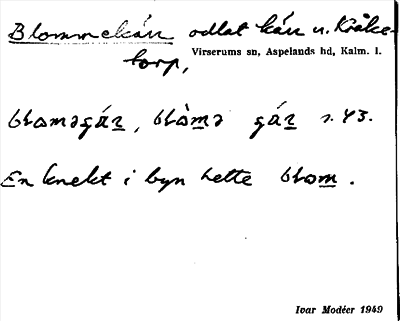 Blommekärr odlat kärr n. Kråke-
Virserums sn, Aspelands hd, Kalm. l.
torp,
bɭomǝgáꞃ, bɭòmǝ gáꞃ s. 43.
En knekt i byn hette bɭom.
Ivar Modéer 1949